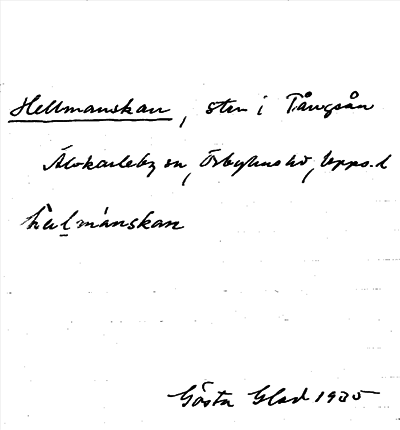 Hellmanskan, sten i Tångsån
Älvkarleby sn, Örbyhus hd, Upps. l
hàl̠mánskan
Gösta Glad 1935